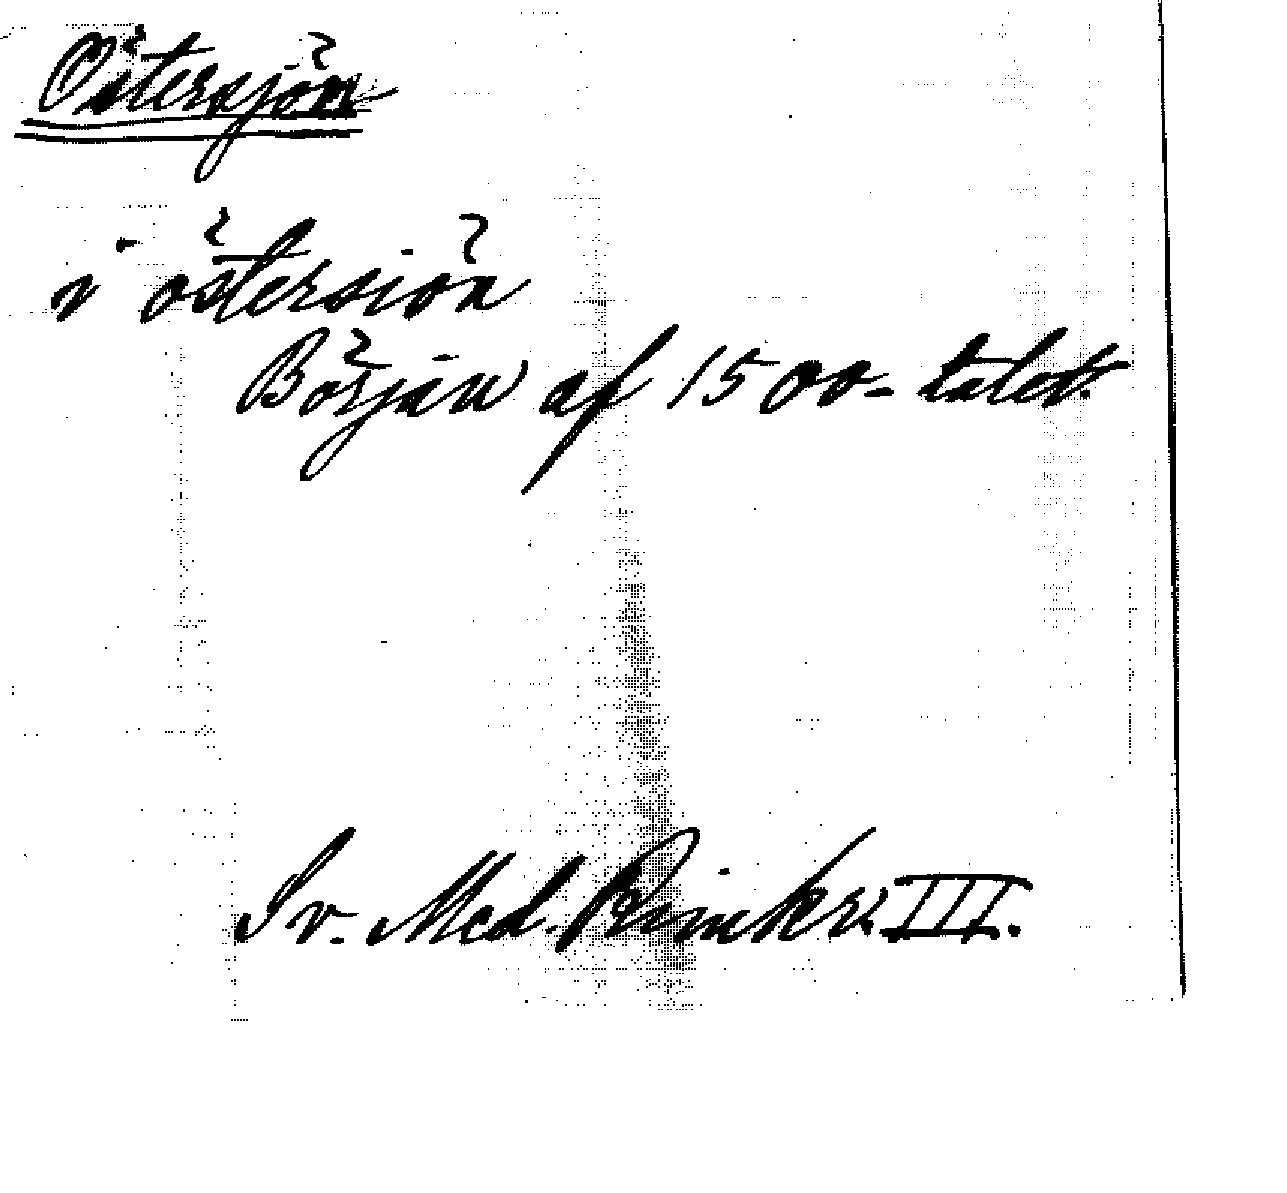 Östersjön
i östersiön
Början af 1500-talet.
Sv. Med. Rimkr. III.